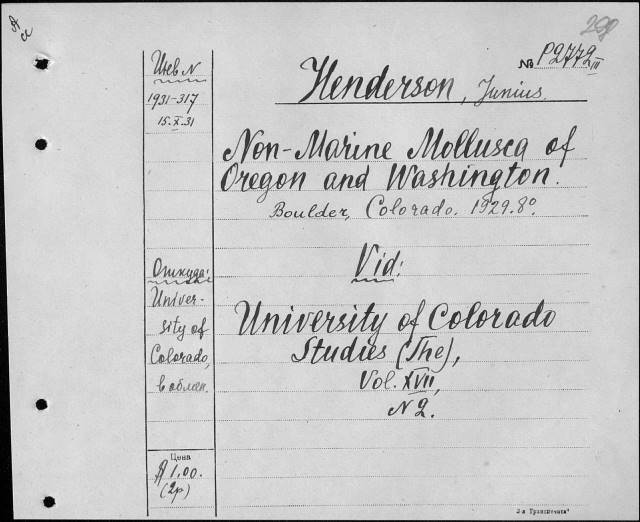 290
№ P2772 III
Henderson, Junius.
Инв N
1931-317
15.X.31
Non-Marine Mollusca of
Oregon and Washington.
Boulder, Colorado. 1929. 8º.
Vid:
University of Colorado
Studies (The),
Vol. XVII,
N 2.
Откуда:
Univer-
sity of
Colorado,
в обмен.
Цена
$ 1.00.
(2р)
2-я Транспечать